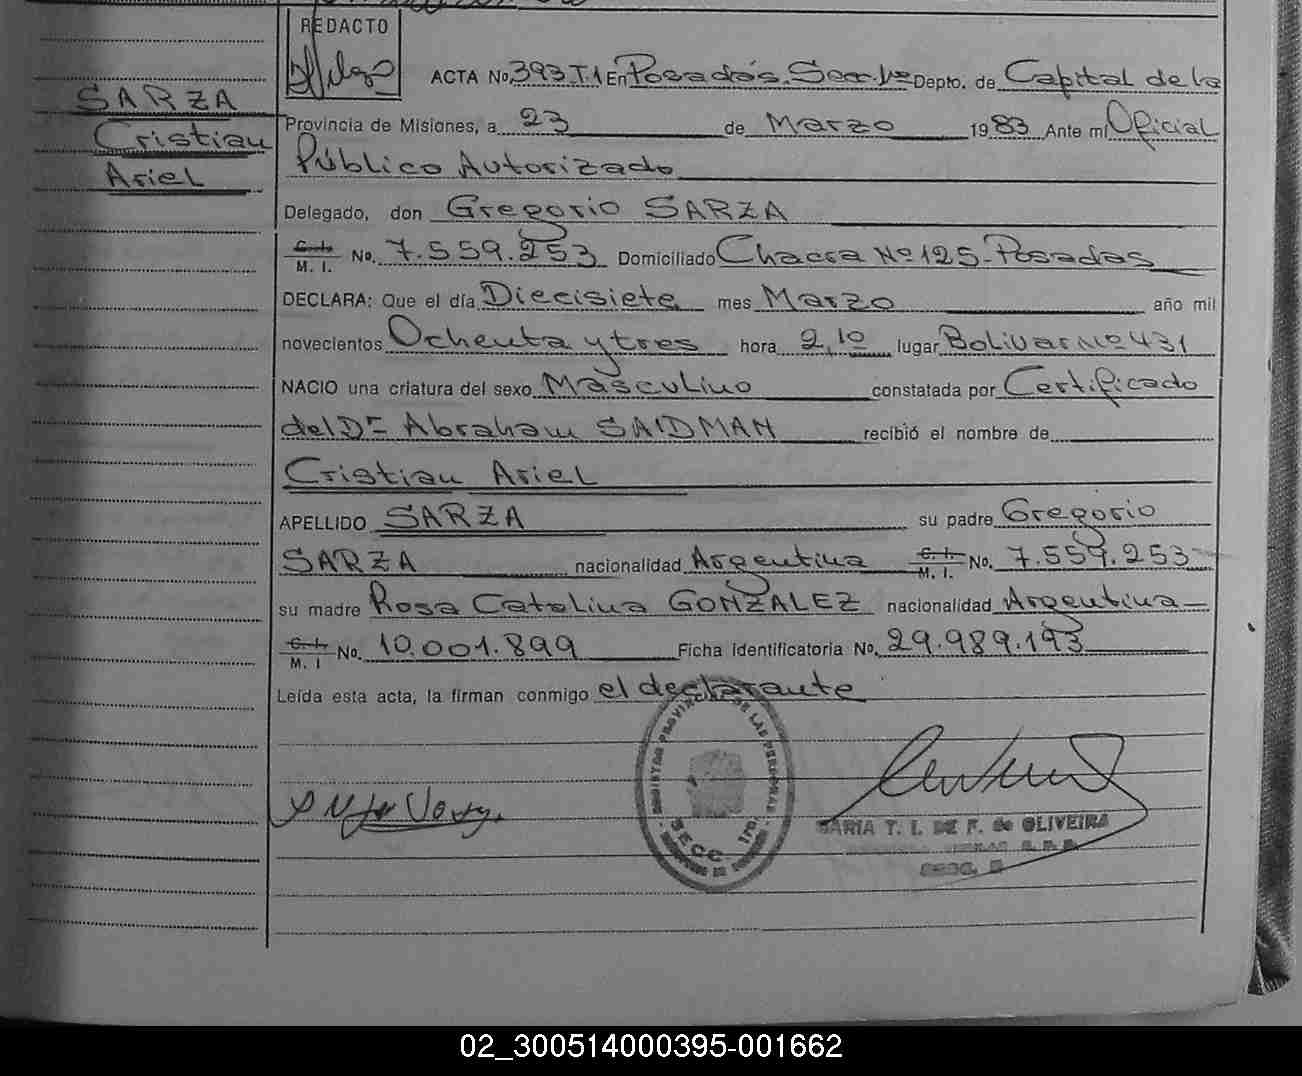 REDACTO
ACTA No. 393 T.1 En Posadas. Secc. 1ª Depto. de Capital de la
SARZA
Cristian
Ariel
Provincia de Misiones, a 23 de Marzo 1983 Ante mí Oficial
Público Autorizado
Delegado, don Gregorio SARZA
C. I. M. I. No. 7.559.253 Domiciliado Chacra Nº 125-Posadas
DECLARA: Que el día Diecisiete mes Marzo año mil
novecientos Ochenta y tres hora 2,10 lugar Bolivar Nº 431
NACIO una criatura del sexo Masculino constatada por Certificado
del Dr Abraham SAIDMAN recibió el nombre de
Cristian Ariel
APELLIDO SARZA su padre Gregorio
SARZA nacionalidad Argentina C. I. M. I. No. 7.559.253
su madre Rosa Catalina GONZALEZ nacionalidad Argentina
C. I. M. I No. 10.001.899 Ficha Identificatoria No. 29.989.193
Leída esta acta, la firman conmigo el declarante
REGISTRO PROVINCIAL DE LAS PERSONAS
SECC. 1ra
MARIA T. I. DE F. de OLIVEIRA
02_300514000395-001662